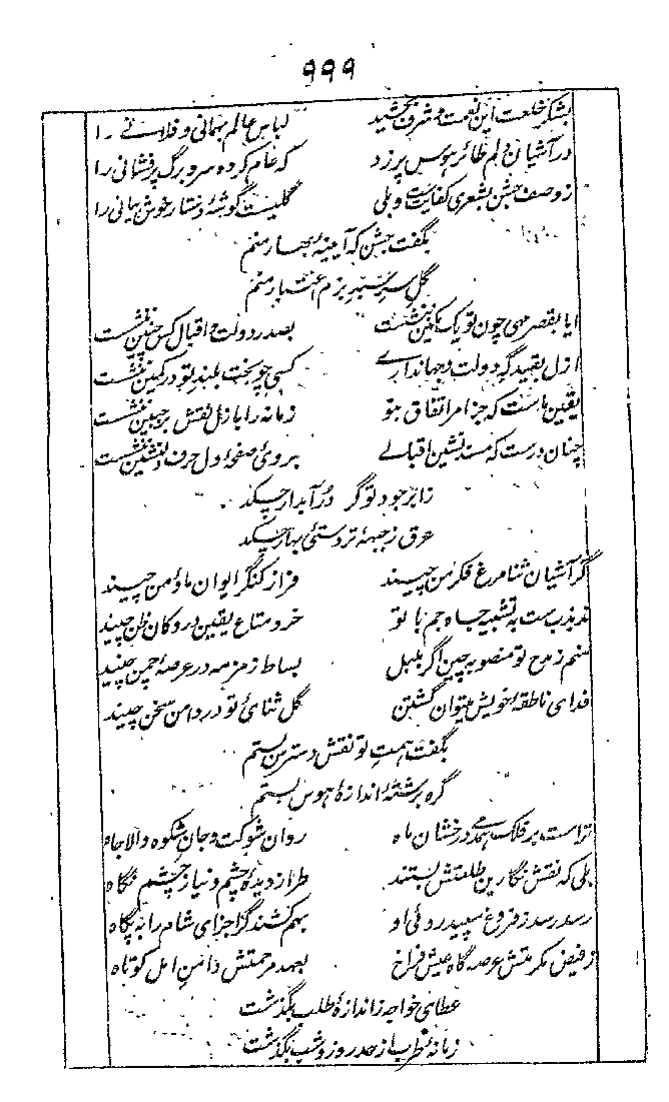 ۹۹۹
بشکر خلعت این نعمت و شرف بخشید لباس عالم همانی و فلانے را
در آشیان دلم طائر هوس پر زد که عام کرده سر و برگ پرفشانی را
ز وصف جشن بشعری کفایت ست ولی گلیست گوشهٔ دستار خوش بیانی را
بگفت جشن که آیینهٔ بهار منم
گل سر سبد بزم اعتبار منم
ایا بقصر مهی چون تو یک مکین ننشست بصدر دولت و اقبال کس چنین ننشست
ازل بقید گه دولت و جهاندارے کسی چو بخت بلند تو در کمین ننشست
یقین ماست که جز امر اتفاق بتو زمانه را بازل نقش بر جبین ننشست
چنان درست که مسند نشین اقبالے بروئ صفحهٔ دل حرف دلنشین ننشست
ز ابر جود تو گر در آبدار چکد
عرق ز جبههٔ تردستئ بهار چکد
گر آشیان ثنا مرغ فکر من چیند فراز کنگر ایوان ما و من چیند
به تشبیه جاه جم با تو خرد متاع یقین در دکان ظن چیند
منم ز مدح تو منصوبه چین اگر بلبل بساط زمزمه در عرصهٔ چمن چیند
فدای ناطقهٔ خویش میتوان گشتن گل ثنائ تو در دامن سخن چیند
بگفت همت تو نقش دسترس بستم
گره برشتهٔ اندازهٔ هوس بستم
تراست بر فلک درخشان ماه روان شوکت و جان شکوه و والا جاه
بلی که نقش نگارین طلعتش بستند طراز دیدهٔ چشم و نیاز چشم نگاه
رسد رسد ز فروغ سپید روئی او بهم کشند گر اجزای شام را به پگاه
ز فیض مکرمتش عرصه گاه عیش فراخ بعهد مرحمتش دامن امل کوتاه
عطای خواجه ز اندازهٔ طلب بگذشت
زمانهٔ طرب از حد روز و شب بگذشت